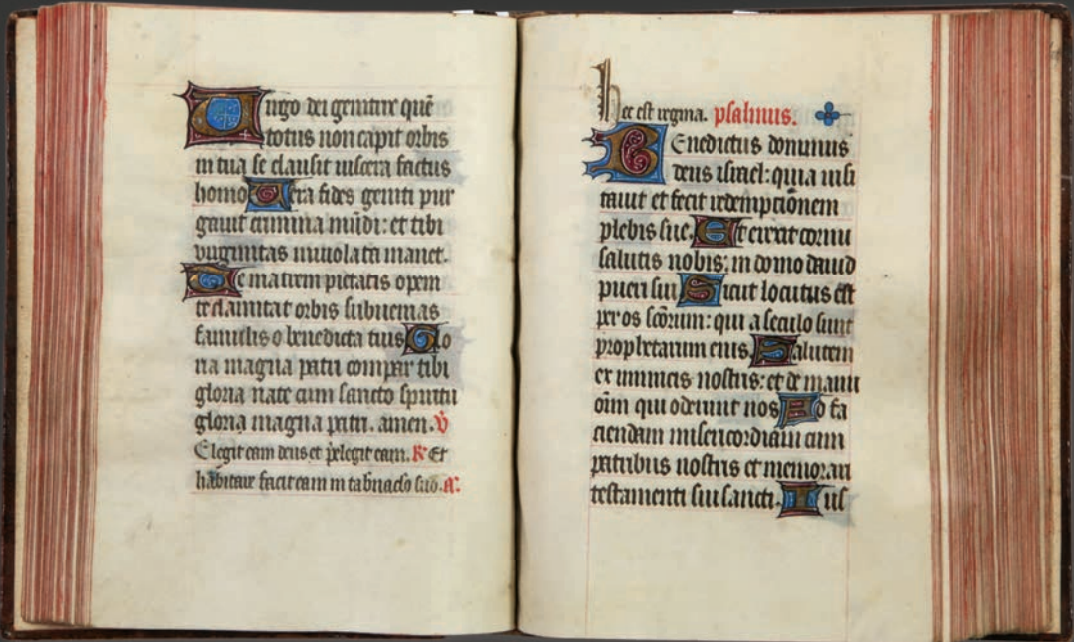 Uirgo dei genitrix quē
totus non capit orbis
in tua se clausit viscera factus
homo Uera fides geniti pur
gauit crimina mūdi: et tibi
virginitas inuiolata manet.
Te matrem pietatis opem
te clamitat orbis subuenias
famulis o benedicta tuis Glo
ria magna patri compar tibi
gloria nate cum sancto spiritu
gloria magna patri. amen. V
Elegit eam deus et p̄elegit eam. R Et
habitare facit eam in tab̄naclo suo. A.
hec est regina. psalmus.
Benedictus dominus
deus israel: quia visi
tauit et fecit redemptionem
plebis sue. Et erexit cornu
salutis nobis: in domo dauid
pueri sui Sicut locutus est
per os sc̄orum: qui a seculo sunt
prophetarum eius Salutem
ex inimicis nostris: et de manu
oīm qui oderunt nos Ad fa
ciendam misericordiam cum
patribus nostris et memorari
testamenti sui sancti. Ius